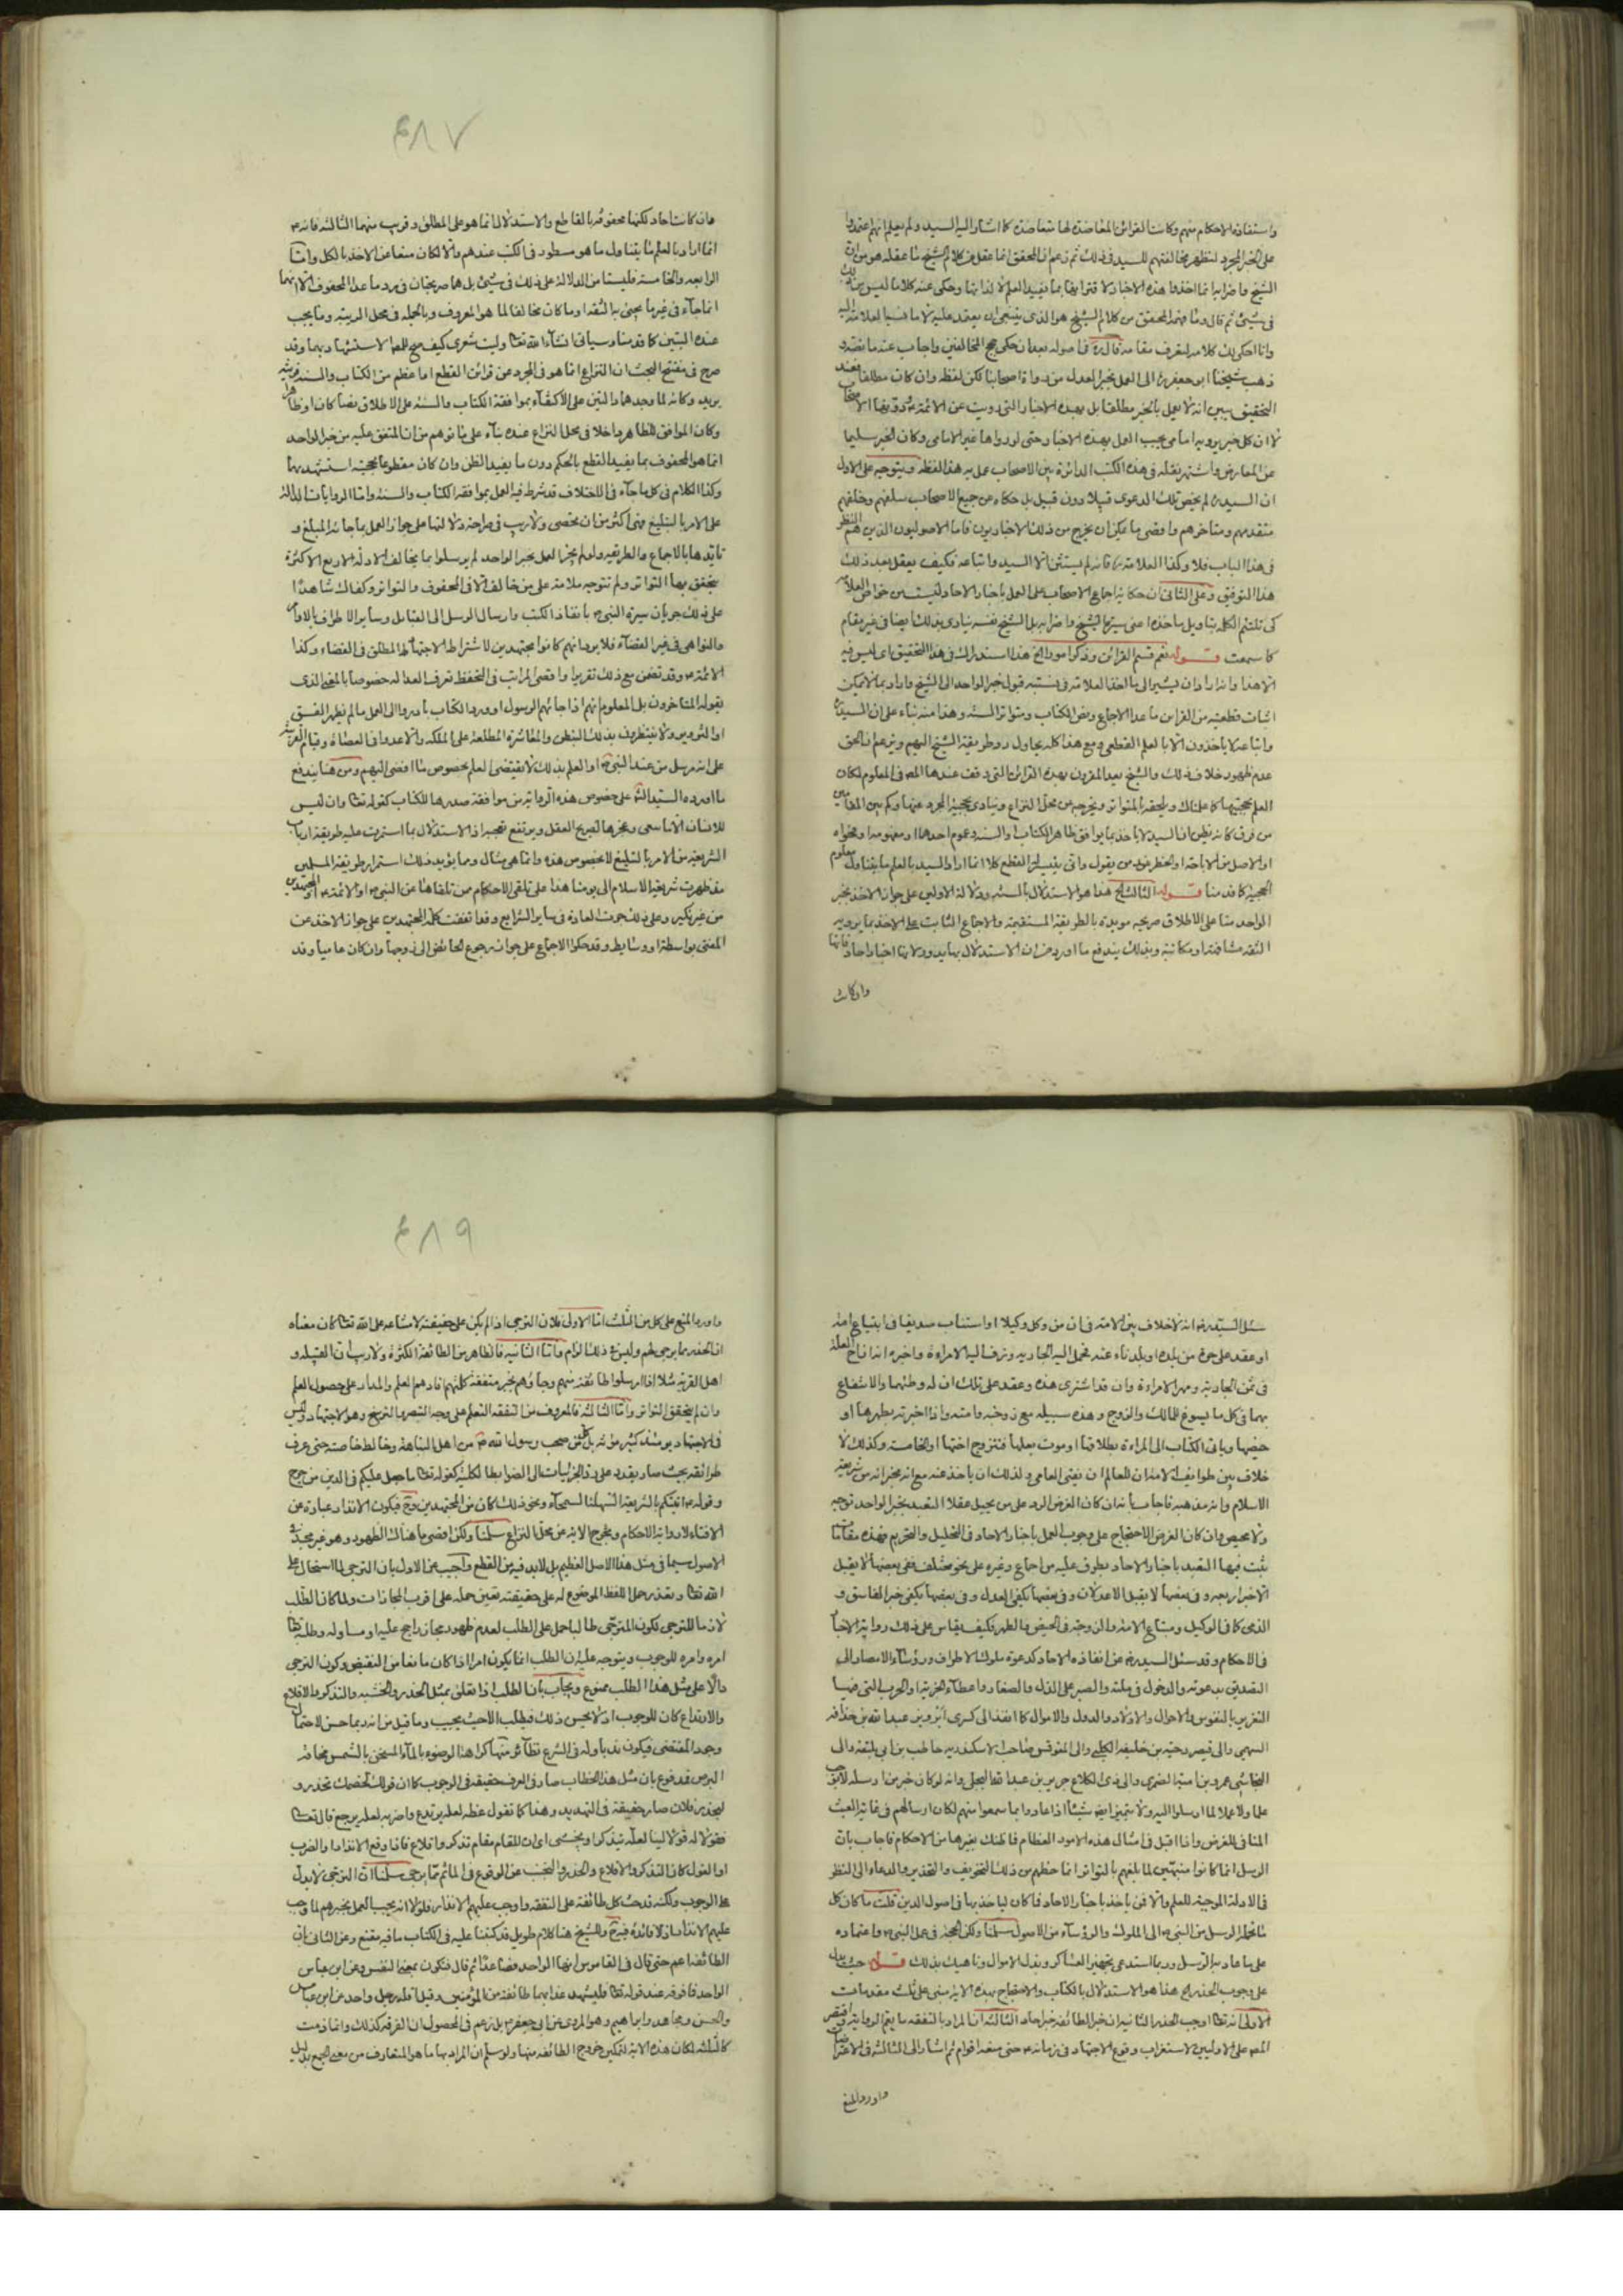 واستفادة الاحكام منهم وكانت القرائن المعاضدة لها متعاضدة كما اشار اليه السيد ولم يعلم انهم اعتمدوا
على الخبر المجرد لتظهر مخالفتهم للسيد في ذلك ثم زعم ان المحقق انما عقل من كلام الشيخ ما عقله هو من ان
الشيخ واضرابه انما اخذوا هذه الاخبار لاقترانها بما يفيد العلم لا لذاتها وحكى عنه كلاما ليس من ذلك
في شيء ثم قال وما فهمه المحقق من كلام الشيخ هو الذي ينبغي ان يعتمد عليه لا ما نسبه العلامة اليه
وانا احكي لك كلامه لتعرف مقامه قال ره في اصوله بعد ان حكى حجج المخالفين واجاب عنه ما نصه
ذهب شيخنا ابو جعفر ره الى العمل بخبر العدل من رواة اصحابنا لكن لفظه وان كان مطلقا فعند
التحقيق يبين انه لا يعمل بالخبر مطلقا بل بهذه الاخبار التي رويت عن الائمة ع ودونها الاصحاب
لا ان كل خبر يرويه امامي يجب العمل بهذه الاخبار حتى لو رواها غير الامامي وكان الخبر سليما
عن المعارض واشتهر نقله في هذه الكتب الدائرة بين الاصحاب عمل به هذا لفظه ويتوجه على الاول
ان السيد ره لم يخص تلك الدعوى قبيلا دون قبيل بل حكاه عن جميع الاصحاب سلفهم وخلفهم
متقدمهم ومتاخرهم واقصى ما يمكن ان يخرج من ذلك الاخباريون فاما الاصوليون الذين هم النظر
في هذا الباب فلا وكذا العلامة ره فانه لم يستثن الا السيد واتباعه فكيف يعقل بعد ذلك
هذا التوفيق وعلى الثاني ان حكاية اجماع الاصحاب على العمل باخبار الاحاد ليست من خواص العلامة
كي تلتئم الكلمة بتاويل ماخذه اعني سيرة الشيخ واضرابه بل الشيخ نفسه ينادي بذلك ايضا في غير مقام
كما سمعت قوله نعم قسم القرائن وذكر امورا الخ هذا استدراك في هذا التحقيق اي ليس فيه
الا هذا وانه اراد ان يشير الى ماخذ العلامة في نسبته قبول خبر الواحد الى الشيخ واراد بما لا يمكن
اثبات قطعيته من القرائن ما عدا الاجماع ونص الكتاب ومتواتر السنة وهذا منه بناء على ان السيد ره
واتباعه لا ياخذون الا بالعلم القطعي ومع هذا كله يحاول رد طريقة الشيخ اليهم ويزعم ان الحق
عدم ظهور خلاف ذلك والشيخ يعد المقرون بهذه القرائن التي وقف عندها المص في المعلوم لكان
العلم بحجيتها كما علمناك ويلحقه بالمتواتر ويخرجه عن محل النزاع وينادي بحجية المجرد عنها وكم بين المقامين
من فرق كانه يظن ان السيد لا ياخذ بما يوافق ظاهر الكتاب والسنة وعموم احدهما او مفهومه او فحواه
او الاصل من الاباحة او الحظر عند من يقول وانى يتيسر له القطع كلا انما اراد السيد بالعلم ما يتناول معلوم
الحجية كما قدمنا قوله الثالث الخ هذا هو الاستدلال بالسنة ودلالة الاوليين على جواز الاخذ بخبر
الواحد منا على الاطلاق صريحة مؤيدة بالطريقة المستقيمة والاجماع الثابت على الاخذ بما يرويه
الثقة مشافهة او مكاتبة وبذلك يندفع ما اورد من ان الاستدلال بها يدور لانها اخبار احاد فانها
وان كانت
٤٨٧
وان كانت احاد لكنها محفوفة بالقاطع والاستدلال انما هو على المطلق وقريب منهما الثالثة فانه ع
انما اراد بالعلم ما يتناول ما هو مسطور في الكتب عندهم والا لكان منعا عن الاخذ بالكل واما
الرابعة والخامسة فليستا من الدلالة على ذلك في شيء بل هما صريحتان في رد ما عدا المحفوف الا انهما
انما جاءا في غير ما يجيء به الثقة او ما كان مخالفا لما هو المعروف وبالجملة في محل الريبة وما يجب
عنده التبين كما قدمنا وسياتي انشاء الله تعالى وليت شعري كيف صح للمص الاستشهاد بهما وقد
صرح في مفتتح البحث ان النزاع انما هو في المجرد عن قرائن القطع اما عظم من الكتاب والسنة فربما
يريد وكانه لما وجدهما دالتين على الاكتفاء بموافقة الكتاب والسنة على الاطلاق نصا كان او ظاهرا
وكان الموافق للظاهر داخلا في محل النزاع عنده بناء على ما توهم من ان المتفق عليه من خبر الواحد
انما هو المحفوف بما يفيد القطع بالحكم دون ما يفيد الظن وان كان مقطوعا بحجيته استشهد بهما
وكذا الكلام في كل ما جاء في الاختلاف قد شرط فيه العمل بموافقة الكتاب والسنة واما الروايات الدالة
على الامر بالتبليغ فهي اكثر من ان تحصى ولا ريب في صراحة دلالتها على جواز العمل بما جاء به المبلغ و
تايدها بالاجماع والطريقة ولو لم يجز العمل بخبر الواحد لم يرسلوا بما يخالف الادلة الاربع الا كثرة
يتحقق بها التواتر ولم تتوجه ملامة على من خالف الا في المحفوف والمتواتر وكفاك شاهدا
على ذلك جريان سيرة النبي ص بانفاذ الكتب وارسال الرسل الى القبائل وسائر الاطراف بالاوامر
والنواهي في غير القضاء فلا يرد انهم كانوا مجتهدين لاشتراط الاجتهاد المطلق في القضاء وكذا
الائمة ع وقد تضمن مع ذلك تقريرا واقصى المراتب في التحفظ تعرف العدالة خصوصا بالمعنى الذي
يقوله المتاخرون بل المعلوم انهم اذا جاءهم الرسول او ورد الكتاب بادروا الى العمل ما لم يظهر الفسق
او التزوير ولا ينتظرون بذلك التبطن والمعاشرة المطلعة على الملكة والا عدوا في العصاة وقيام القرينة
على انه مرسل من عند النبي ص او العلم بذلك لا يقتضي العلم بخصوص ما افضى اليهم ومن هنا يندفع
ما اورده السيد الش على خصوص هذه الرواية من موافقة صدرها للكتاب كقوله تعالى وان ليس
للانسان الا ما سعى وعجزها لصريح العقل ويرتفع تعجبه اذ الاستدلال بما استمرت عليه طريقة ارباب
الشريعة من الامر بالتبليغ لا بخصوص هذه وانما هي مثال ومما يؤيد ذلك استمرار طريقة المسلمين
مذ ظهرت شريعة الاسلام الى يومنا هذا على تلقي الاحكام ممن تلقاها عن النبي ص او الائمة ع او المجتهدين
من غير نكير وعلى ذلك جرت العادة في سائر الشرايع وقد اتفقت كلمة المجتهدين على جواز الاخذ عن
المفتي بواسطة او وسايط وقد حكوا الاجماع على جواز رجوع الحائض الى زوجها وان كان عاميا وقد
سئل السيد ره انه لا خلاف بين الامة في ان من وكل وكيلا او استناب صديقا في ابتياع امة
او عقد على حرة من بلده او بلد ناء عنه فحمل اليه الجارية وزف اليه الامراءة واخبره انه ازاح العلة
في ثمن الجارية ومهر الامراءة وان قد اشترى هذه وعقد على تلك ان له وطئهما والانتفاع
بهما في كل ما يسوغ للمالك والزوج وهذه سبيله مع زوجته وامته واذا اخبرته بطهرها او
حيضها وياتي الكتاب الى المراءة بطلاقها او موت بعلها فتتزوج اختها او الخامسة وكذلك لا
خلاف بين طوايف الامة ان للعالم ان يفتي العامي وله ذلك ان ياخذ عنه مع انه يخبر انه من شريعة
الاسلام وانه مذهبه فاجاب بانه ان كان الغرض الرد على من يحيل عقلا التعبد بخبر الواحد توجه
ولا محيص وان كان الغرض الاحتجاج على وجوب العمل باخبار الاحاد في التحليل والتحريم فهذه مقامات
ثبت فيها التعبد باخبار الاحاد بطرق علمية من اجماع وغيره على نحو مختلف ففي بعضها لا يقبل
الا خبر اربعة وفي بعضها لا يقبل الا عدلان وفي بعضها يكفي العدل وفي بعضها يكفي خبر الفاسق و
الذمي كما في الوكيل ومبتاع الامة والزوجة في الحيض والطهر فكيف يقاس على ذلك رواية الاخبار
في الاحكام وقد سئل السيد ره عن انفاذه الاحاد كدعوة ملوك الاطراف ورؤساء الامصار الى
التصديق بدعوته والدخول في ملته والصبر على الذل والصغار واعطاء الجزية او الحرب التي فيها
التغرير بالنفوس والاحوال والاولاد والدول والاموال كما انفذ الى كسرى ابرويز عبد الله بن حذافة
السهمي والى قيصر دحية بن خليفة الكلبي والى المقوقس صاحب الاسكندرية حاطب بن ابي بلتعة والى
النجاشي عمرو بن امية الضمري والى ذي الكلاع جرير بن عبد الله البجلي وانه لو كان خبر من ارسله لا يوجب
علما ولا عملا لما ارسلوا اليه ولا يتميز ايضا شيئا اذا عادوا بما سمعوا منهم لكان ارسالهم في غاية العبث
المنافي للغرض واذا قبل في امثال هذه الامور العظام فما ظنك بغيرها من الاحكام فاجاب بان
الرسل انما كانوا منبهين لما بلغهم بالتواتر انما حظهم من ذلك التخويف والتحذير والدعاء الى النظر
في الادلة الموجبة للعلم والا فمن ياخذ باخبار الاحاد فما كان لياخذ بها في اصول الدين قلت ما كان كل
ما تحمله الرسل من النبي ص الى الملوك والرؤساء من الاصول سلمنا ولكن الحجة في عمل النبي ص واعتماده
على ما عاد به الرسل وربما استدعى تجهيز العساكر وبذل الاموال وناهيك بذلك قوله حيث يدل
على وجوب الحذر الخ هذا هو الاستدلال بالكتاب والاحتجاج بهذه الاية مبني على ثلث مقدمات
الاولى انه تعالى اوجب الحذر الثانية ان خبر الطائفة خبر احاد الثالثة ان المراد بالتفقه ما يعم الرواية واقتصر
المص على الاوليين لاستغراب وقوع الاجتهاد في زمانه ع حتى منعه اقوام ثم اشار الى الثالثة في الاعتراضات
واورد المنع
٤٨٩
واورد المنع على كل من الثلث اما الاولى فلان الترجي اذا لم يكن على حقيقته لامتناعه على الله تعالى كان معناه
ان الحذر مما يرجى لهم وليس في ذلك الزام واما الثانية فالظاهر من الطائفة الكثرة ولا ريب ان القبيلة و
اهل القرية مثلا اذا ارسلوا طائفة منهم وجاؤهم بخبر متفقة كلمتهم افادهم العلم والمدار على حصول العلم
وان لم يتحقق التواتر واما الثالثة فالمعروف من التفقه التعلم على وجه التبصر والترسخ وهو الاجتهاد وليس
في الاجتهاد يومئذ كثير مؤنة بل كل من صحب رسول الله ص من اهل النباهة وخالط خاصته حتى عرف
طرائقه بحيث صار يقدر على رد الجزئيات الى الضوابط الكلية كقوله تعالى ما جعل عليكم في الدين من حرج
وقوله ع اتيتكم بالشريعة السهلة السمحاء ونحو ذلك كان من المجتهدين وح فيكون الانذار عبارة عن
الافتاء لا رواية الاحكام وتخرج الاية عن محل النزاع سلمنا ولكن اقصى ما هناك الظهور وهو غير مجد في
الاصول سيما في مثل هذا الاصل العظيم بل لا بد فيه من القطع واجيب عن الاول بان الترجي لما استحال على
الله تعالى وتعذر حمل اللفظ الموضوع له على حقيقته تعين حمله على اقرب المجازات ولما كان الطلب
لازما للترجي لكون المترجي طالبا حمل على الطلب لعدم ظهور مجاز راجح عليه او مساو له وطلبه تعالى
امره وامره للوجوب ويتوجه عليه ان الطلب انما يكون امرا اذا كان مانعا من النقيض وكون الترجي
دالا على مثل هذا الطلب ممنوع ويجاب بان الطلب اذا تعلق بمثل الحذر والخشية والتذكر والاقلاع
والارتداع كان للوجوب اذ لا يحسن ذلك فيطلب الا حيث يجيب وما قيل من انه ربما حسن لاحتمال
وجود المقتضى فيكون ندبا وله في الشرع نظائر منها كراهة الوضوء بالماء المسخن بالشمس مخافة
البرص مدفوع بان مثل هذا الخطاب صار في العرف حقيقة في الوجوب كما ان قولك لخصمك تحذر و
ليحذر فلان صار حقيقة في التهديد وهذا كما تقول عظه لعله يرتدع واضربه لعله يرجع قال تعالى
فقولا له قولا لينا لعله يتذكر او يخشى اي ان المقام مقام تذكر واقلاع فاذا وقع الانذار او الضرب
او القول كان التذكر والاقلاع والحذر والتجنب عن الوقوع في المآثم مما يرجى سلمنا ان الترجي لا يدل
على الوجوب ولكنه قد حث كل طائفة على التفقه واوجب عليهم الانذار فلولا انه يجب العمل بخبرهم لما وجب
عليهم الانذار اذ لا فائدة فيه ح وللشيخ هنا كلام طويل قد كتبنا عليه في الكتاب ما فيه مقنع وعن الثاني بان
الطائفة اعم حتى قال في القاموس انها الواحد فصاعدا ثم قال فتكون بمعنى النفس وعن ابن عباس
الواحد فما فوقه عند قوله تعالى فليشهد عذابهما طائفة من المؤمنين وقيل اقله رجل واحد عن ابن عباس
والحسن ومجاهد وابراهيم وهو المروي عن ابي جعفر ع بل زعم في المحصول ان الفرقة كذلك وانما ذمت
كالثلثة لمكان هذه الاية لتمكين خروج الطائفة منها ولو سلم ان المراد بها ما هو المتعارف من معنى الجمع بدليل